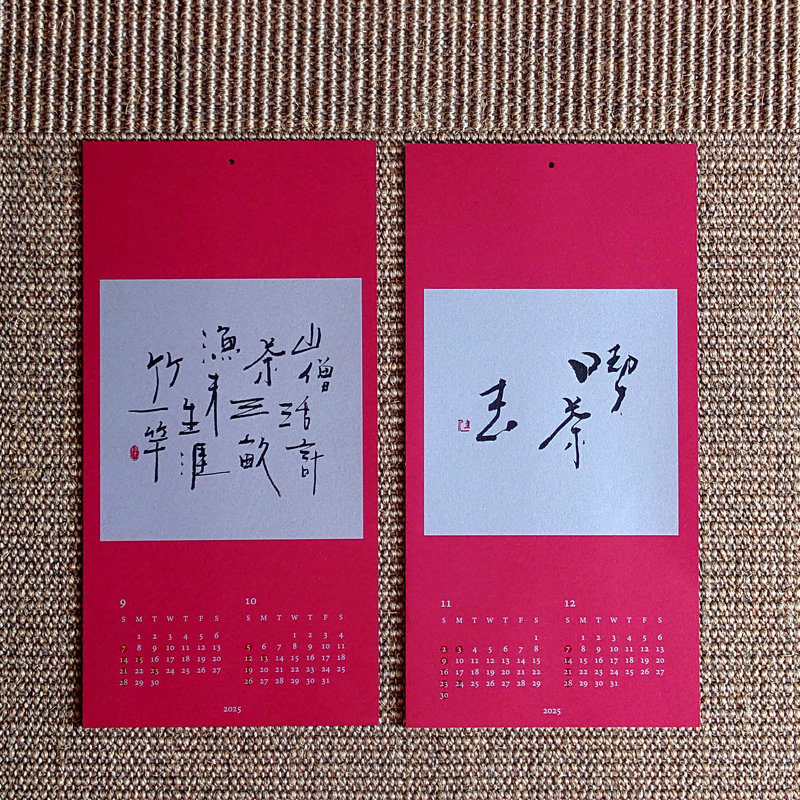 山僧活計
茶三畝
漁夫生涯
竹一竿
9
S M T W T F S
1 2 3 4 5 6
7 8 9 10 11 12 13
14 15 16 17 18 19 20
21 22 23 24 25 26 27
28 29 30
10
S M T W T F S
1 2 3 4
5 6 7 8 9 10 11
12 13 14 15 16 17 18
19 20 21 22 23 24 25
26 27 28 29 30 31
2025
喫茶
去
11
S M T W T F S
1
2 3 4 5 6 7 8
9 10 11 12 13 14 15
16 17 18 19 20 21 22
23 24 25 26 27 28 29
30
12
S M T W T F S
1 2 3 4 5 6
7 8 9 10 11 12 13
14 15 16 17 18 19 20
21 22 23 24 25 26 27
28 29 30 31
2025